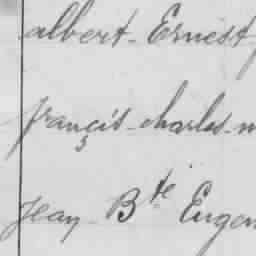 albert Ernest
françis charles
Jean Bte Eugen